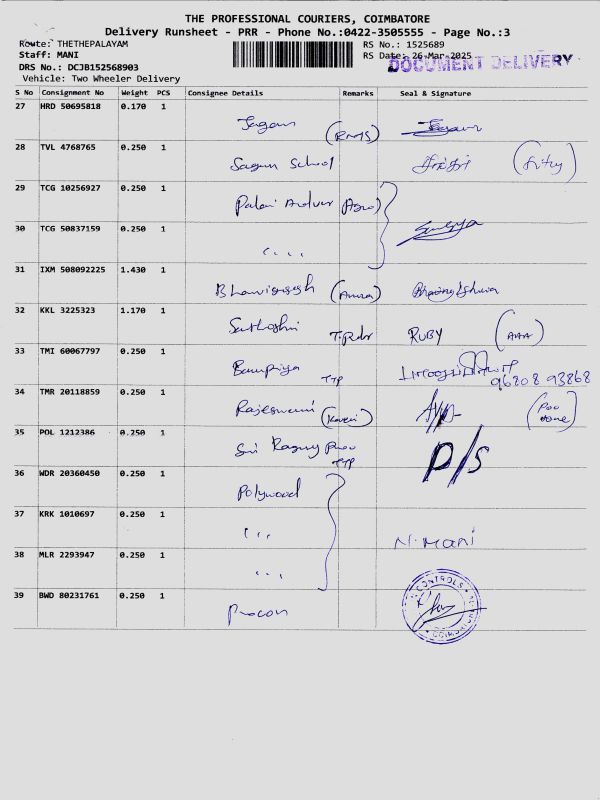 THE PROFESSIONAL COURIERS, COIMBATORE
Delivery Runsheet - PRR - Phone No.:0422-3505555 - Page No.:3
Route: THETHEPALAYAM
RS No.: 1525689
Staff: MANI
RS Date: 26-Mar-2025
DOCUMENT DELIVERY
DRS No.: DCJB152568903
Vehicle: Two Wheeler Delivery
S No Consignment No Weight PCS Consignee Details Remarks Seal & Signature
27 HRD 50695818 0.170 1
Jagan (RMS)
28 TVL 4768765 0.250 1
Sagun School
29 TCG 10256927 0.250 1
Palani (Agro)
30 TCG 50837159 0.250 1
31 IXM 508092225 1.430 1
32 KKL 3225323 1.170 1
Santhoshi RUBY
33 TMI 60067797 0.250 1
Banupriya TTP
96808 93868
34 TMR 20118859 0.250 1
Rajeswari (Kaveri)
35 POL 1212386 0.250 1
Sri TTP P/S
36 WDR 20360450 0.250 1
Polywood
37 KRK 1010697 0.250 1
N. Mani
38 MLR 2293947 0.250 1
39 BWD 80231761 0.250 1
Procon